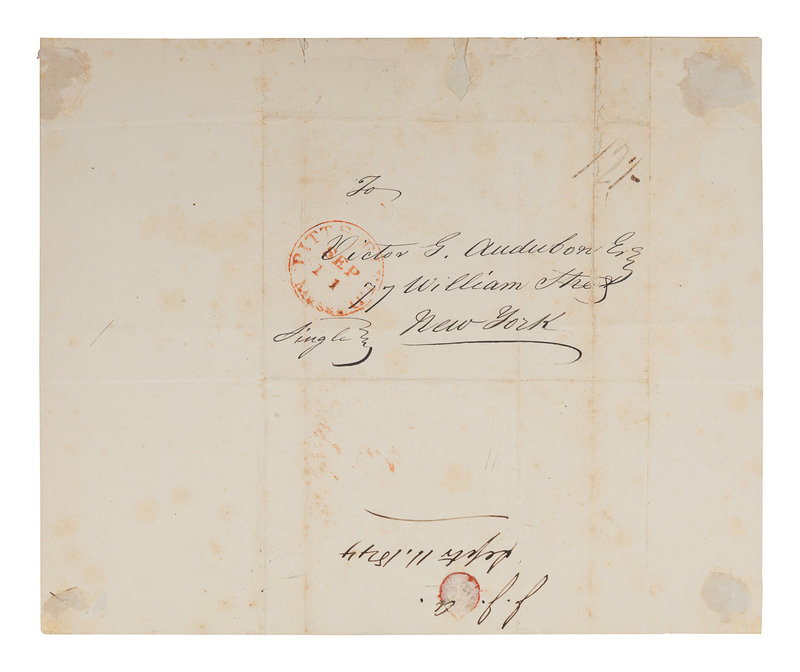 To
Victor G. Audubon Esqr
77 William Street
New York
Single
SEP
11
J. J. A.
Septr 11. 1844